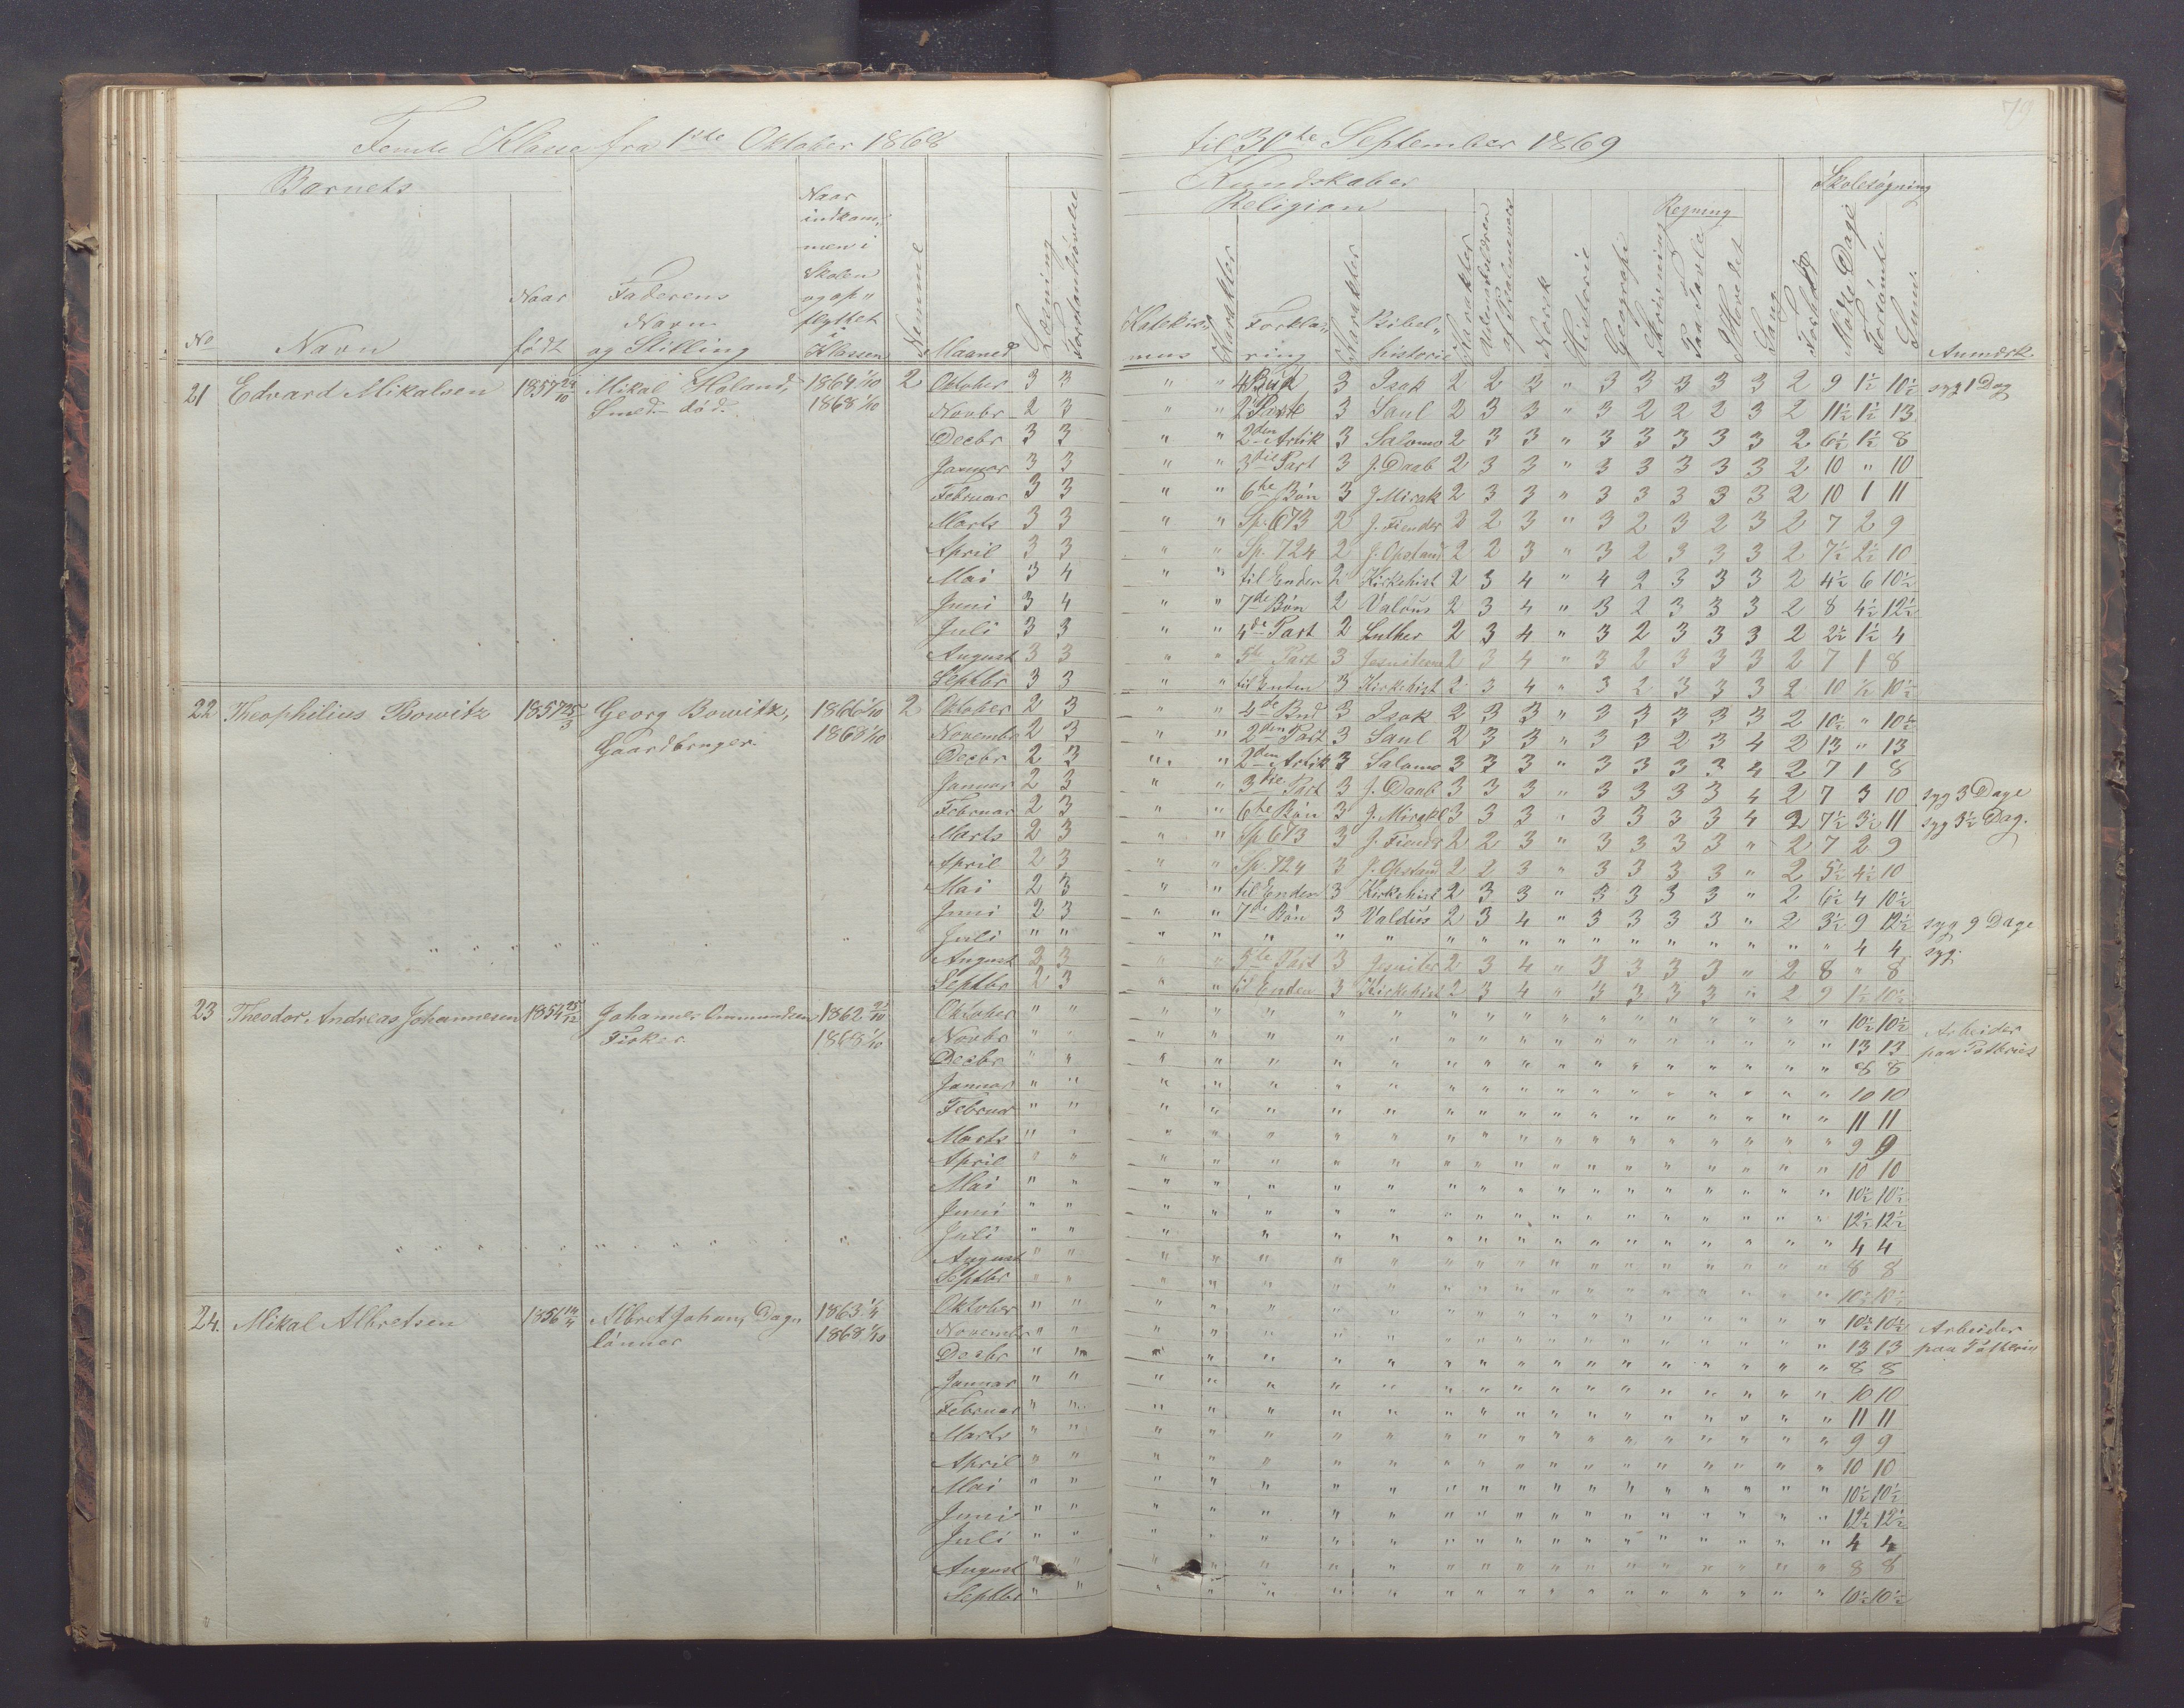 79
Femte Klasse fra 1ste Oktober 1868 til 30te September 1869
Barnets Kundskaber Skolesøgning
Religion Regning
No Navn Naar født Faderens Navn og Stilling Naar indkommen i Skolen og opflyttet i Klassen Nemme Maaned Læsning Forstandsøvelse
Katekismus Karakter Forklaring Karakter Bibelhistorie Karakter Udenadslæren af Salmevers Norsk Historie Geografi Skrivning Paa Tavle I Hovedet Sang Forhold Mødte Dage Forsømte Summa Anmærk.
21 Edvard Mikalsen 1857 29/10 Mikal Høland, 1864 1/10 2 Oktober 3 3 " " 4 Bud 3 Isak 2 2 3 " 3 3 3 3 3 2 9 1½ 10½ syg 1 Dag
Smed død. 1868 1/10 Novbr 2 3 " " 2 Part 3 Saul 2 3 3 " 3 2 2 2 3 2 11½ 1½ 13
Decbr 3 3 " " 2den Artik 3 Salomo 2 3 3 " 3 3 3 3 3 2 6½ 1½ 8
Januar 3 3 " " 3die Part 3 J. Daab 2 3 3 " 3 3 3 3 3 2 10 " 10
Februar 3 3 " " 6te Bøn 3 J Mirak 2 3 3 " 3 3 3 3 3 2 10 1 11
Marts 3 3 " " Sp. 673 2 J. Fiender 2 2 3 " 3 2 3 2 3 2 7 2 9
April 3 3 " " Sp. 724 2 J. Opstand 2 2 3 " 3 2 3 3 3 2 7½ 2½ 10
Mai 3 4 " " til Enden 2 Kirkehist 2 3 4 " 4 2 3 3 3 2 4½ 6 10½
Juni 3 4 " " 7de Bøn 2 Valdus 2 3 4 " 3 2 3 3 3 2 8 4½ 12½
Juli 3 3 " " 4de Part 2 Luther 2 3 4 " 3 2 3 3 3 2 2½ 1½ 4
August 3 3 " " 5te Part 3 Jesuitern 2 3 4 " 3 2 3 3 3 2 7 1 8
Septbr 3 3 " " til Enden 3 Kirkehist 2 3 4 " 3 2 3 3 3 2 10 ½ 10½
22 Theophilius Bowitz 1857 25/3 Georg Bowitz, 1866 1/10 2 Oktober 2 3 " " 4de Bud 3 Isak 2 3 3 " 3 3 3 3 3 2 10½ " 10½
Gaardbruger. 1868 1/10 Novembr 2 3 " " 2den Part 3 Saul 2 3 3 " 3 3 2 3 4 2 13 " 13
Decbr 2 3 " " 2den Artik 3 Salomo 3 3 3 " 3 3 3 3 4 2 7 1 8
Januar 2 3 " " 3die Part 3 J. Daab 3 3 3 " 3 3 3 3 4 2 7 3 10 syg 3 Dage
Februar 2 3 " " 6te Bøn 3 J. Mirakl 3 3 3 " 3 3 3 3 4 2 7½ 3½ 11 syg 3½ Dag.
Marts 2 3 " " Sp 673 3 J. Fiendr 2 2 3 " 3 3 3 3 " 2 7 2 9
April 2 3 " " Sp. 724 3 J. Opstand 2 2 3 " 3 3 3 3 " 2 5½ 4½ 10
Mai 2 3 " " til Enden 3 Kirkehist 2 3 3 " 3 3 3 3 " 2 6½ 4 10½
Juni 2 3 " " 7de Bøn 3 Valdus 2 3 4 " 3 3 3 3 " 2 3½ 9 12½ syg 9 Dage
Juli " " " " " " " " " " " " " " " " " " 4 4 syg.
August 2 3 " " 5te Part 3 Jesuiter 2 3 4 " 3 3 3 3 " 2 8 " 8
Septbr 2 3 " " til Enden 3 Kirkehist 2 3 4 " 3 3 3 3 " 2 9 1½ 10½
23 Theodor Andreas Johannesen 1854 25/12 Johannes Ommundsen 1862 21/10 Oktober " " " " " " " " " " " " " " " " " " 10½ 10½ Arbeider
Fisker 1868 1/10 Novbr " " " " " " " " " " " " " " " " " " 13 13 paa Potteriet
Decbr " " " " " " " " " " " " " " " " " " 8 8
Januar " " " " " " " " " " " " " " " " " " 10 10
Februar " " " " " " " " " " " " " " " " " " 11 11
Marts " " " " " " " " " " " " " " " " " " 9 9
April " " " " " " " " " " " " " " " " " " 10 10
Mai " " " " " " " " " " " " " " " " " " 10½ 10½
Juni " " " " " " " " " " " " " " " " " " 12½ 12½
Juli " " " " " " " " " " " " " " " " " " 4 4
August " " " " " " " " " " " " " " " " " " 8 8
Septbr " " " " " " " " " " " " " " " " " " 10½ 10½
24. Mikal Albretsen 1856 14/11 Albret Johans, Dag- 1863 1/4 Oktober " " " " " " " " " " " " " " " " " " 10½ 10½ Arbeider
lønner 1868 1/10 Novembr " " " " " " " " " " " " " " " " " " 13 13 paa Potteriet
Decbr " " " " " " " " " " " " " " " " " " 8 8
Januar " " " " " " " " " " " " " " " " " " 10 10
Februar " " " " " " " " " " " " " " " " " " 11 11
Marts " " " " " " " " " " " " " " " " " " 9 9
April " " " " " " " " " " " " " " " " " " 10 10
Mai " " " " " " " " " " " " " " " " " " 10½ 10½
Juni " " " " " " " " " " " " " " " " " " 12½ 12½
Juli " " " " " " " " " " " " " " " " " " 4 4
August " " " " " " " " " " " " " " " " " " 8 8
Septbr " " " " " " " " " " " " " " " " " " 10½ 10½